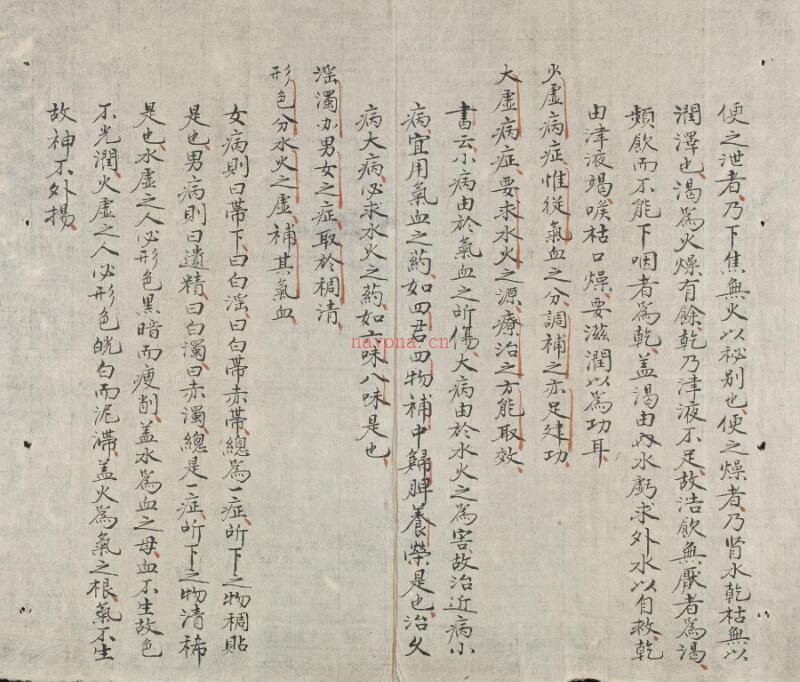 便之泄者、乃下焦無火以秘別也、便之燥者、乃肾水乾枯無以
潤澤也、渴為火燥有餘、乾乃津液不足、故浩飲無厭者為渴、
頻飲而不能下咽者為乾、盖渴由內水虧求外水以自救、乾
由津液竭、喉枯口燥、要滋潤以為功耳
火虛病症、惟従氣血之分調補之亦足建功、
大虛病症、要求水火之源、療治之方能取效、
書云、小病由於氣血之所傷、大病由於水火之為害、故治近病小
病、宜用氣血之药、如四君四物補中歸脾養榮是也、治久
病大病、必求水火之药如六味八味是也、
淫濁亦男女之症、取於稠清、
形色分水火之虛、補其氣血
女病則曰帶下、曰白淫、曰白帶赤帶、總為一症、所下之物稠貼
是也、男病則曰遺精、曰白濁、曰赤濁、總是一症、所下之物清稀
是也、水虛之人必形色黑暗而瘦削、盖水為血之母、血不生故色
不光潤、火虛之人必形色㿠白而泥滯、盖火為氣之根、氣不生
故神不外揚、
nayona.cn